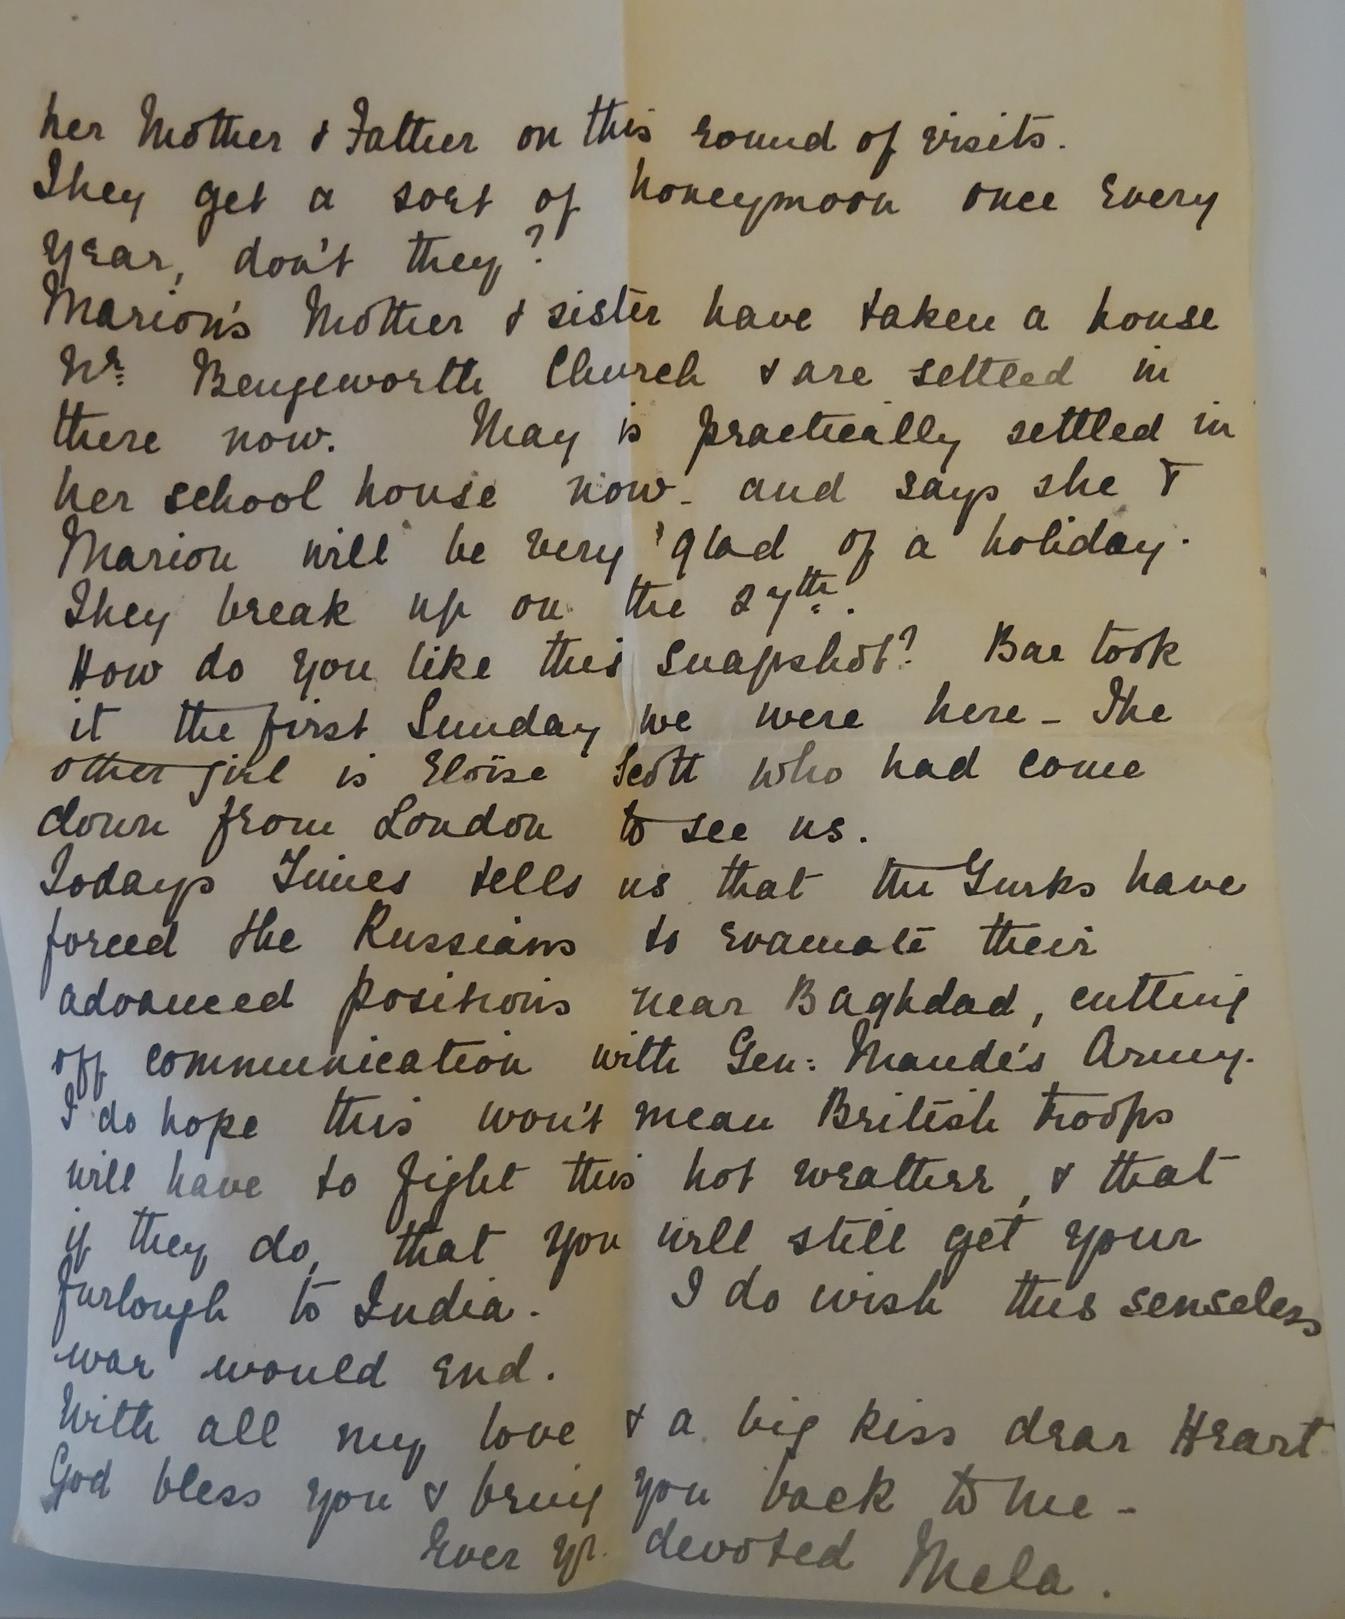 her Mother & Father on this round of visits.
They get a sort of honeymoon once every
year, don't they?
Marion's Mother & sister have taken a house
Nr. Bengeworth Church & are settled in
there now. May is practically settled in
her school house now - and says she &
Marion will be very glad of a holiday.
They break up on the 27th.
How do you like this snapshot? Bae took
it the first Sunday we were here - The
other girl is Eloïse Scott who had come
down from London to see us.
Todays Times tells us that the Turks have
forced the Russians to evacuate their
advanced positions near Baghdad, cutting
off communication with Gen: Maude's Army.
I do hope this won't mean British troops
will have to fight this hot weather, & that
if they do, that you will still get your
furlough to India. I do wish this senseless
war would end.
With all my love & a big kiss dear Heart
God bless you & bring you back to me -
Ever yr. devoted Mela.